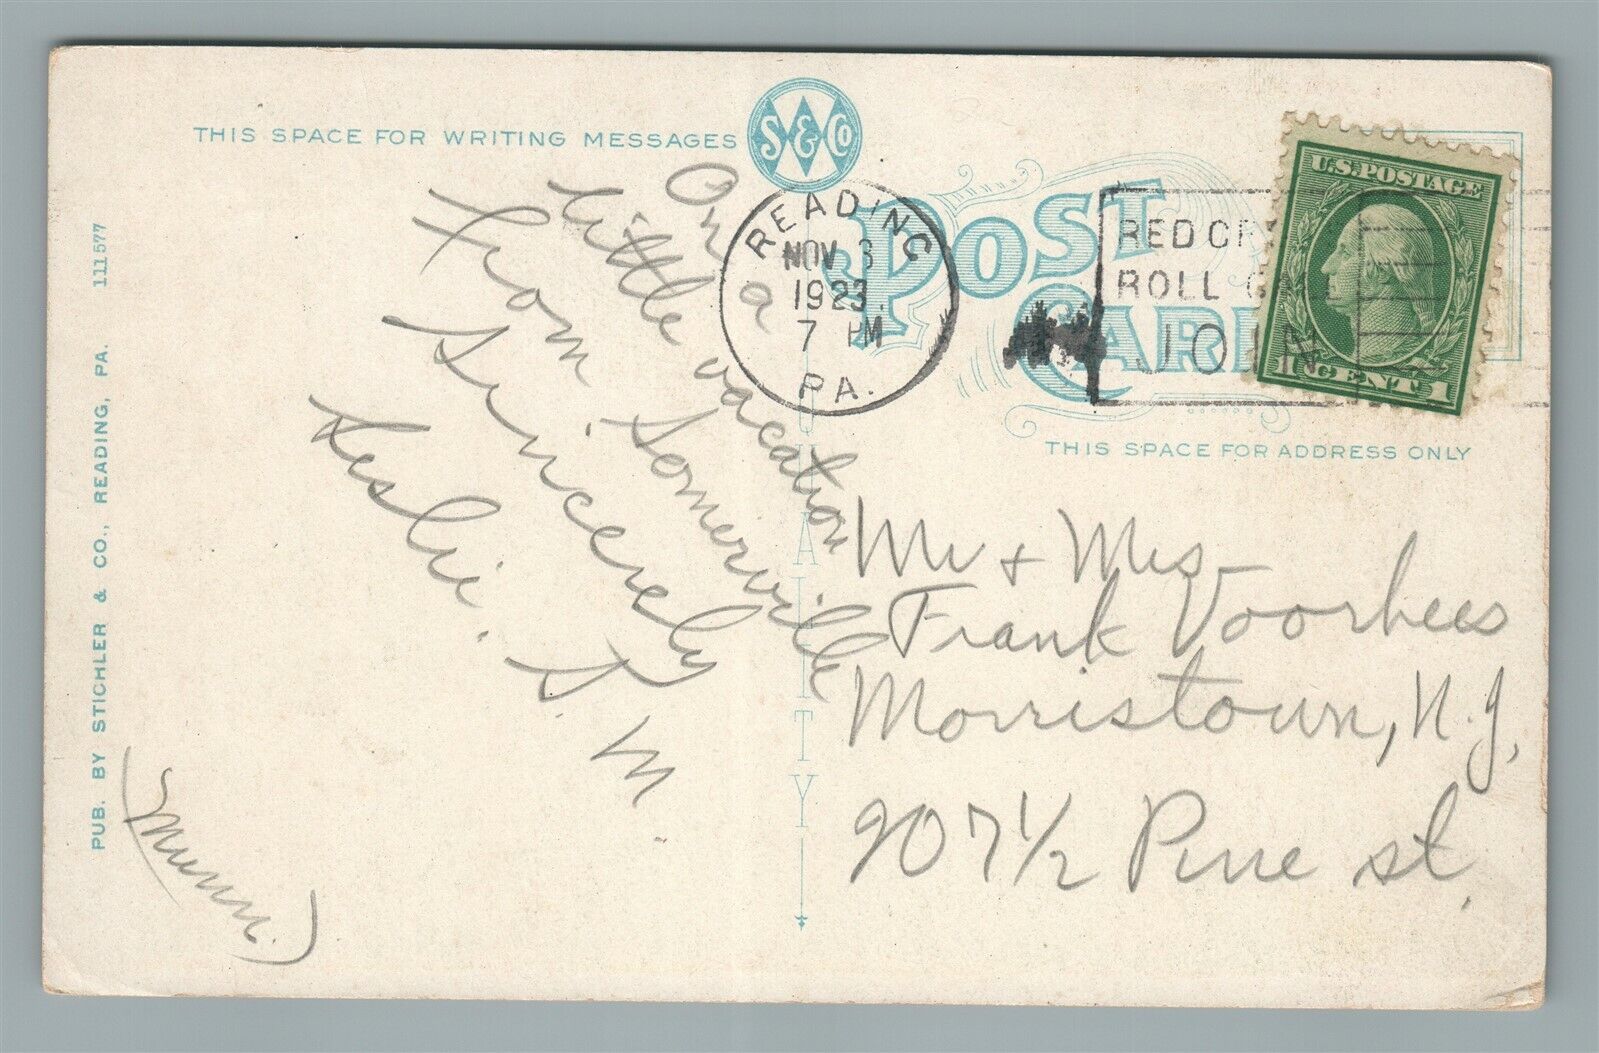 THIS SPACE FOR WRITING MESSAGES
S & Co
POST CARD
U.S. POSTAGE
1 CENT 1
READING
NOV 3
1923
7 PM
PA.
RED CR
ROLL CALL
JOIN
THIS SPACE FOR ADDRESS ONLY
On a
little vacation
from Somerville
Sincerely
Leslie. S. M.
(Munn.)
Mr + Mrs
Frank Voorhees
Morristown, N.J.
207 1/2 Pine St.
QUALITY
PUB. BY STICHLER & CO., READING, PA. 111577